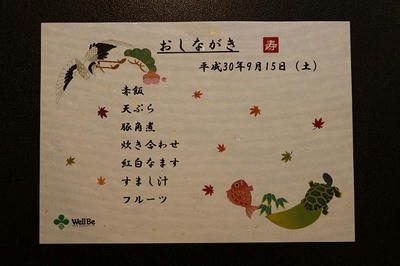 おしながき 寿
平成30年9月15日（土）
赤飯
天ぷら
豚角煮
炊き合わせ
紅白なます
すまし汁
フルーツ
WellBe